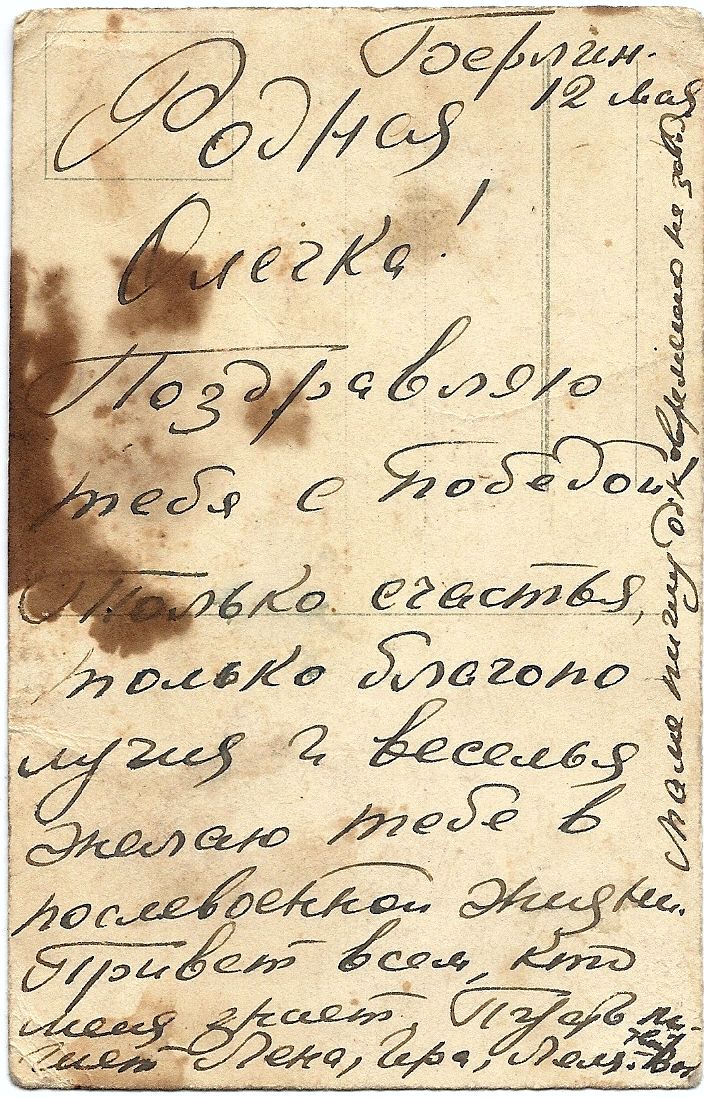 Берлин.
12 мая
Родная
Олечка!
Поздравляю
тебя с Победой
Только счастья,
только благопо
лучия и веселья
желаю тебе в
послевоенной жизни.
Привет всем, кто
меня знает. Пусть пи-
шет Лена, Ира, Леля.
Маме пишу одновременно не